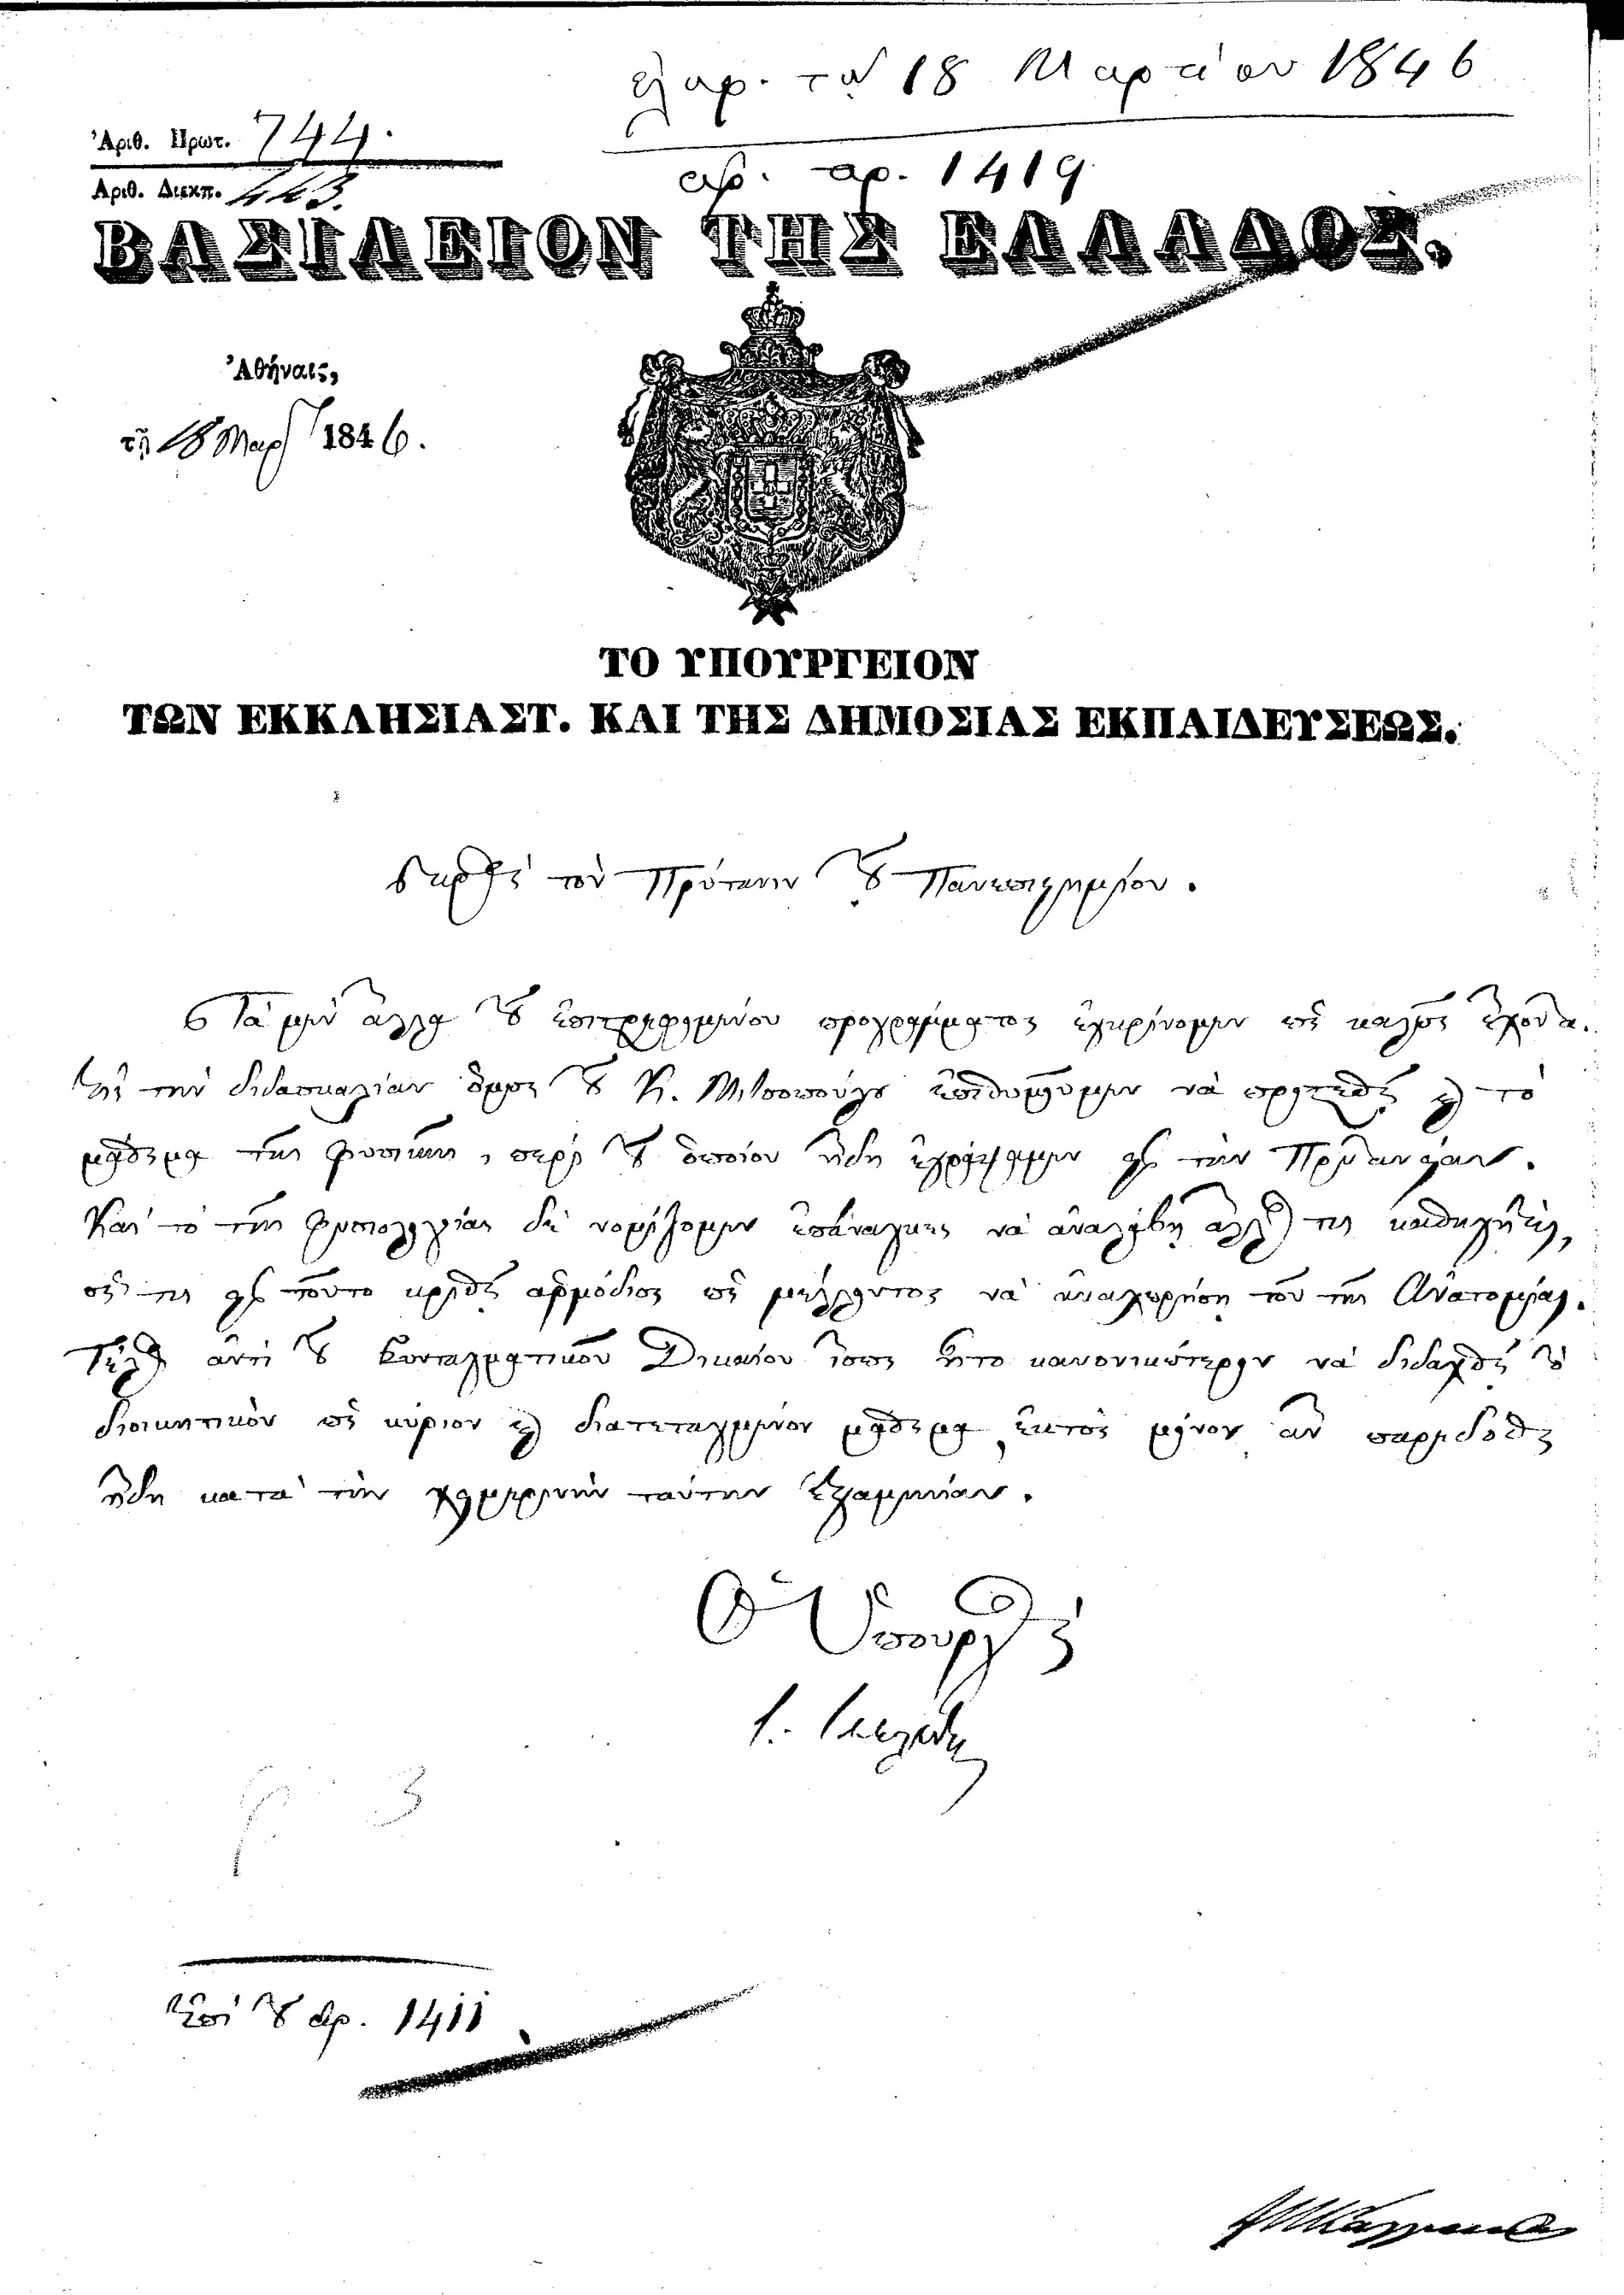 ἐλήφ. τῇ 18 Μαρτίου 1846
Ἀριθ. Πρωτ. 744.
ἀρ. πρ. 1419
Ἀριθ. Διεκπ. 443.
ΒΑΣΙΛΕΙΟΝ ΤΗΣ ΕΛΛΑΔΟΣ.
Ἀθήναις,
τῇ 18 Μαρτ 1846.
ΤΟ ΥΠΟΥΡΓΕΙΟΝ
ΤΩΝ ΕΚΚΛΗΣΙΑΣΤ. ΚΑΙ ΤΗΣ ΔΗΜΟΣΙΑΣ ΕΚΠΑΙΔΕΥΣΕΩΣ.
Πρὸς τὸν Πρύτανιν τοῦ Πανεπιστημίου.
Τὰ μὲν ἄλλα τοῦ ἐπιστραφομένου προγράμματος ἐγκρίνομεν ὡς καλῶς ἔχοντα.
Εἰς τὴν διδασκαλίαν ὅμως τοῦ Κ. Μιτσοπούλου ἐπιθυμοῦμεν νὰ προστεθῇ καὶ τὸ
μάθημα τῆς φυσικῆς, περὶ τοῦ ὁποίου ἤδη ἐγράψαμεν πρὸς τὴν Πρυτανείαν.
Καὶ τὸ τῆς φυσιολογίας δὲ νομίζομεν ἐπάναγκες νὰ ἀναλάβῃ ἄλλος τις καθηγητής,
ὅς τις πρὸς τοῦτο κριθῇ ἁρμόδιος ὡς μέλλοντος νὰ ἀναχωρήσῃ τοῦ τῆς Ἀνατομίας.
Τέλος ἀντὶ τοῦ Συνταγματικοῦ Δικαίου ἴσως ἦτο κανονικώτερον νὰ διδαχθῇ τὸ
διοικητικὸν ὡς κύριον καὶ διατεταγμένον μάθημα, ἐκτὸς μόνον ἂν παρεδόθη
ἤδη κατὰ τὴν χειμερινὴν ταύτην ἑξαμηνίαν.
Ὁ Ὑπουργὸς
Ἐπὶ τοῦ ἀρ. 1411